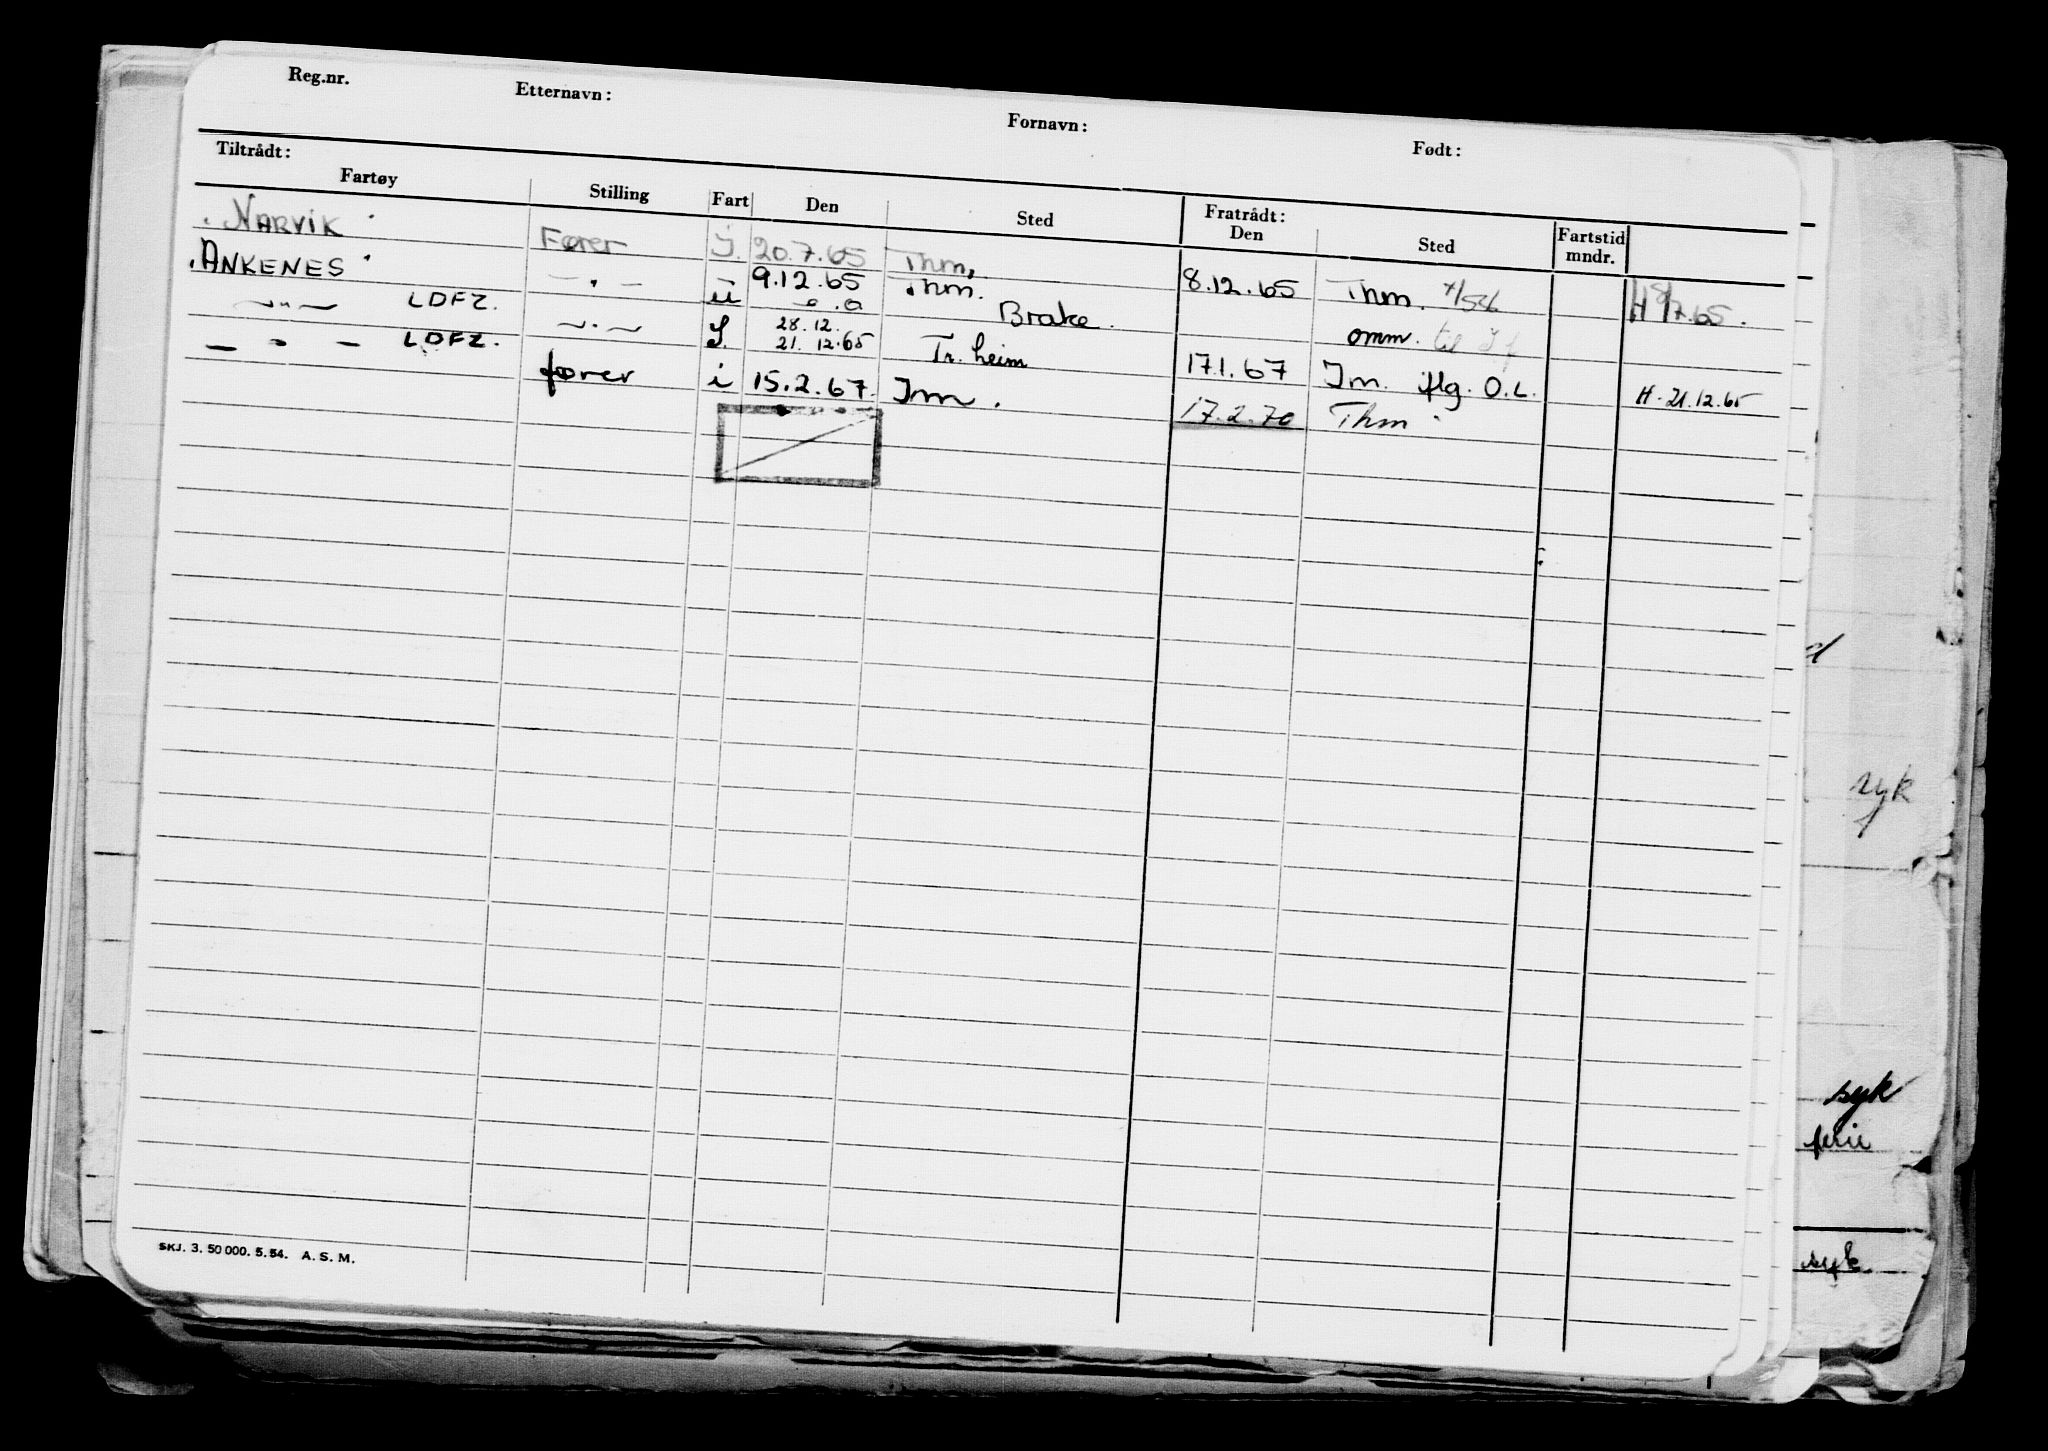 Reg.nr. Etternavn: Fornavn: Født:
Tiltrådt: Fratrådt:
Fartøy Stilling Fart Den Sted Den Sted Fartstid mndr.
"NARVIK" Fører I. 20.7.65 Thm. 8.12.65 Thm. H 7.65.
"ANKENES" — " — 9.12.65 Thm.
— " — LDFZ. — " — u Brake. omm. til
— " — LDFZ. I. 28.12. 21.12.65 Tr.heim 17.1.67 Tm. flg. O.L. H. 21.12.65
fører i 15.2.67. Tm. 17.2.70 Thm
syk
syk
ferie
syk
SKJ. 3. 50 000. 5. 54. A. S. M.